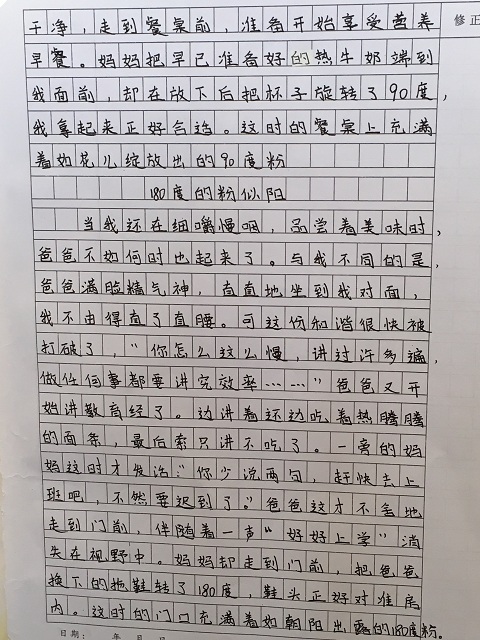 干净，走到餐桌前，准备开始享受营养
修正
早餐。妈妈把早已准备好的热牛奶端到
我面前，却在放下后把杯子旋转了90度，
我拿起来正好合适。这时的餐桌上充满
着如花儿绽放出的90度粉
180度的粉似阳
当我还在细嚼慢咽，品尝着美味时，
爸爸不如何时也起来了。与我不同的是，
爸爸满脸精气神，直直地坐到我对面，
我不由得直了直腰。可这份和谐很快被
打破了，“你怎么这么慢，讲过许多遍，
做任何事都要讲究效率……”爸爸又开
始讲教育经了。边讲着还边吃着热腾腾
的面条，最后索只讲不吃了。一旁的妈
妈这时才发话：“你少说两句，赶快去上
班吧，不然要迟到了。”爸爸这才不舍地
走到门前，伴随着一声“好好上学”消
失在视野中。妈妈却走到门前，把爸爸
换下的拖鞋转了180度，鞋头正好对准房
内。这时的门口充满着如朝阳出露的180度粉。
日期： 年 月 日